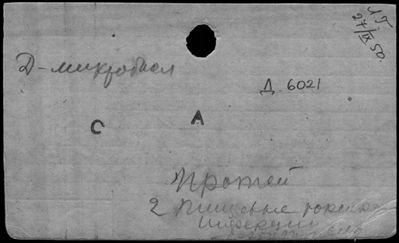 ЛГ
27/IX 50.
Д-микробиол
Д 6021
С А
Протей
2 Пищевые токсико-
инфекции